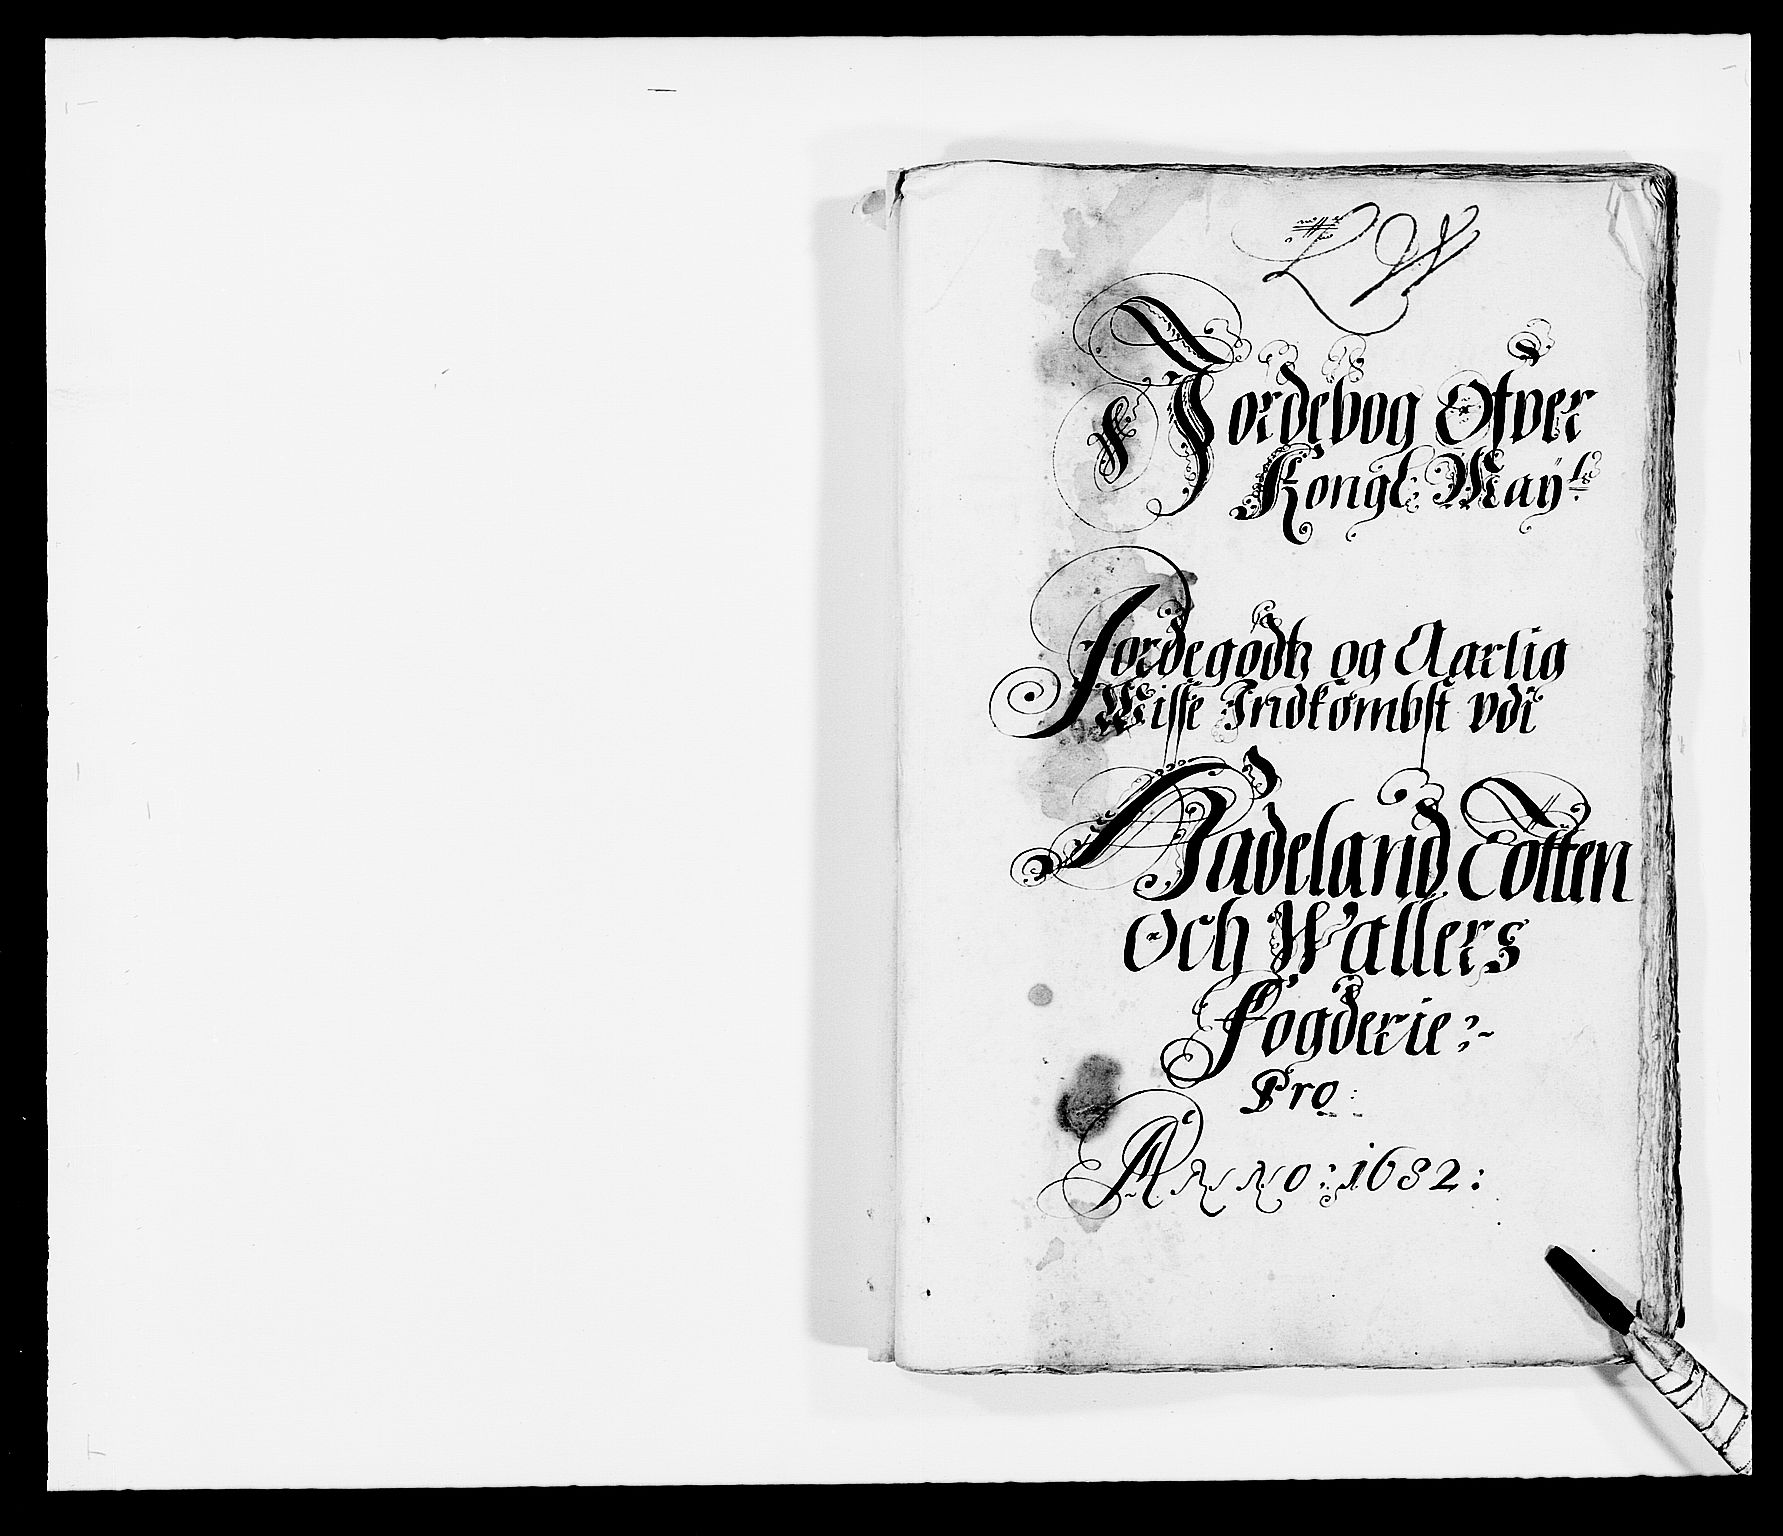 L W
Jordebog Ofver
Kongl: Mayts
Jordegodtz og Aarlig
Wisse Indkombst vdi
Hadeland Totten
Och Wallers
Fogderie:
Pro
Anno: 1682: